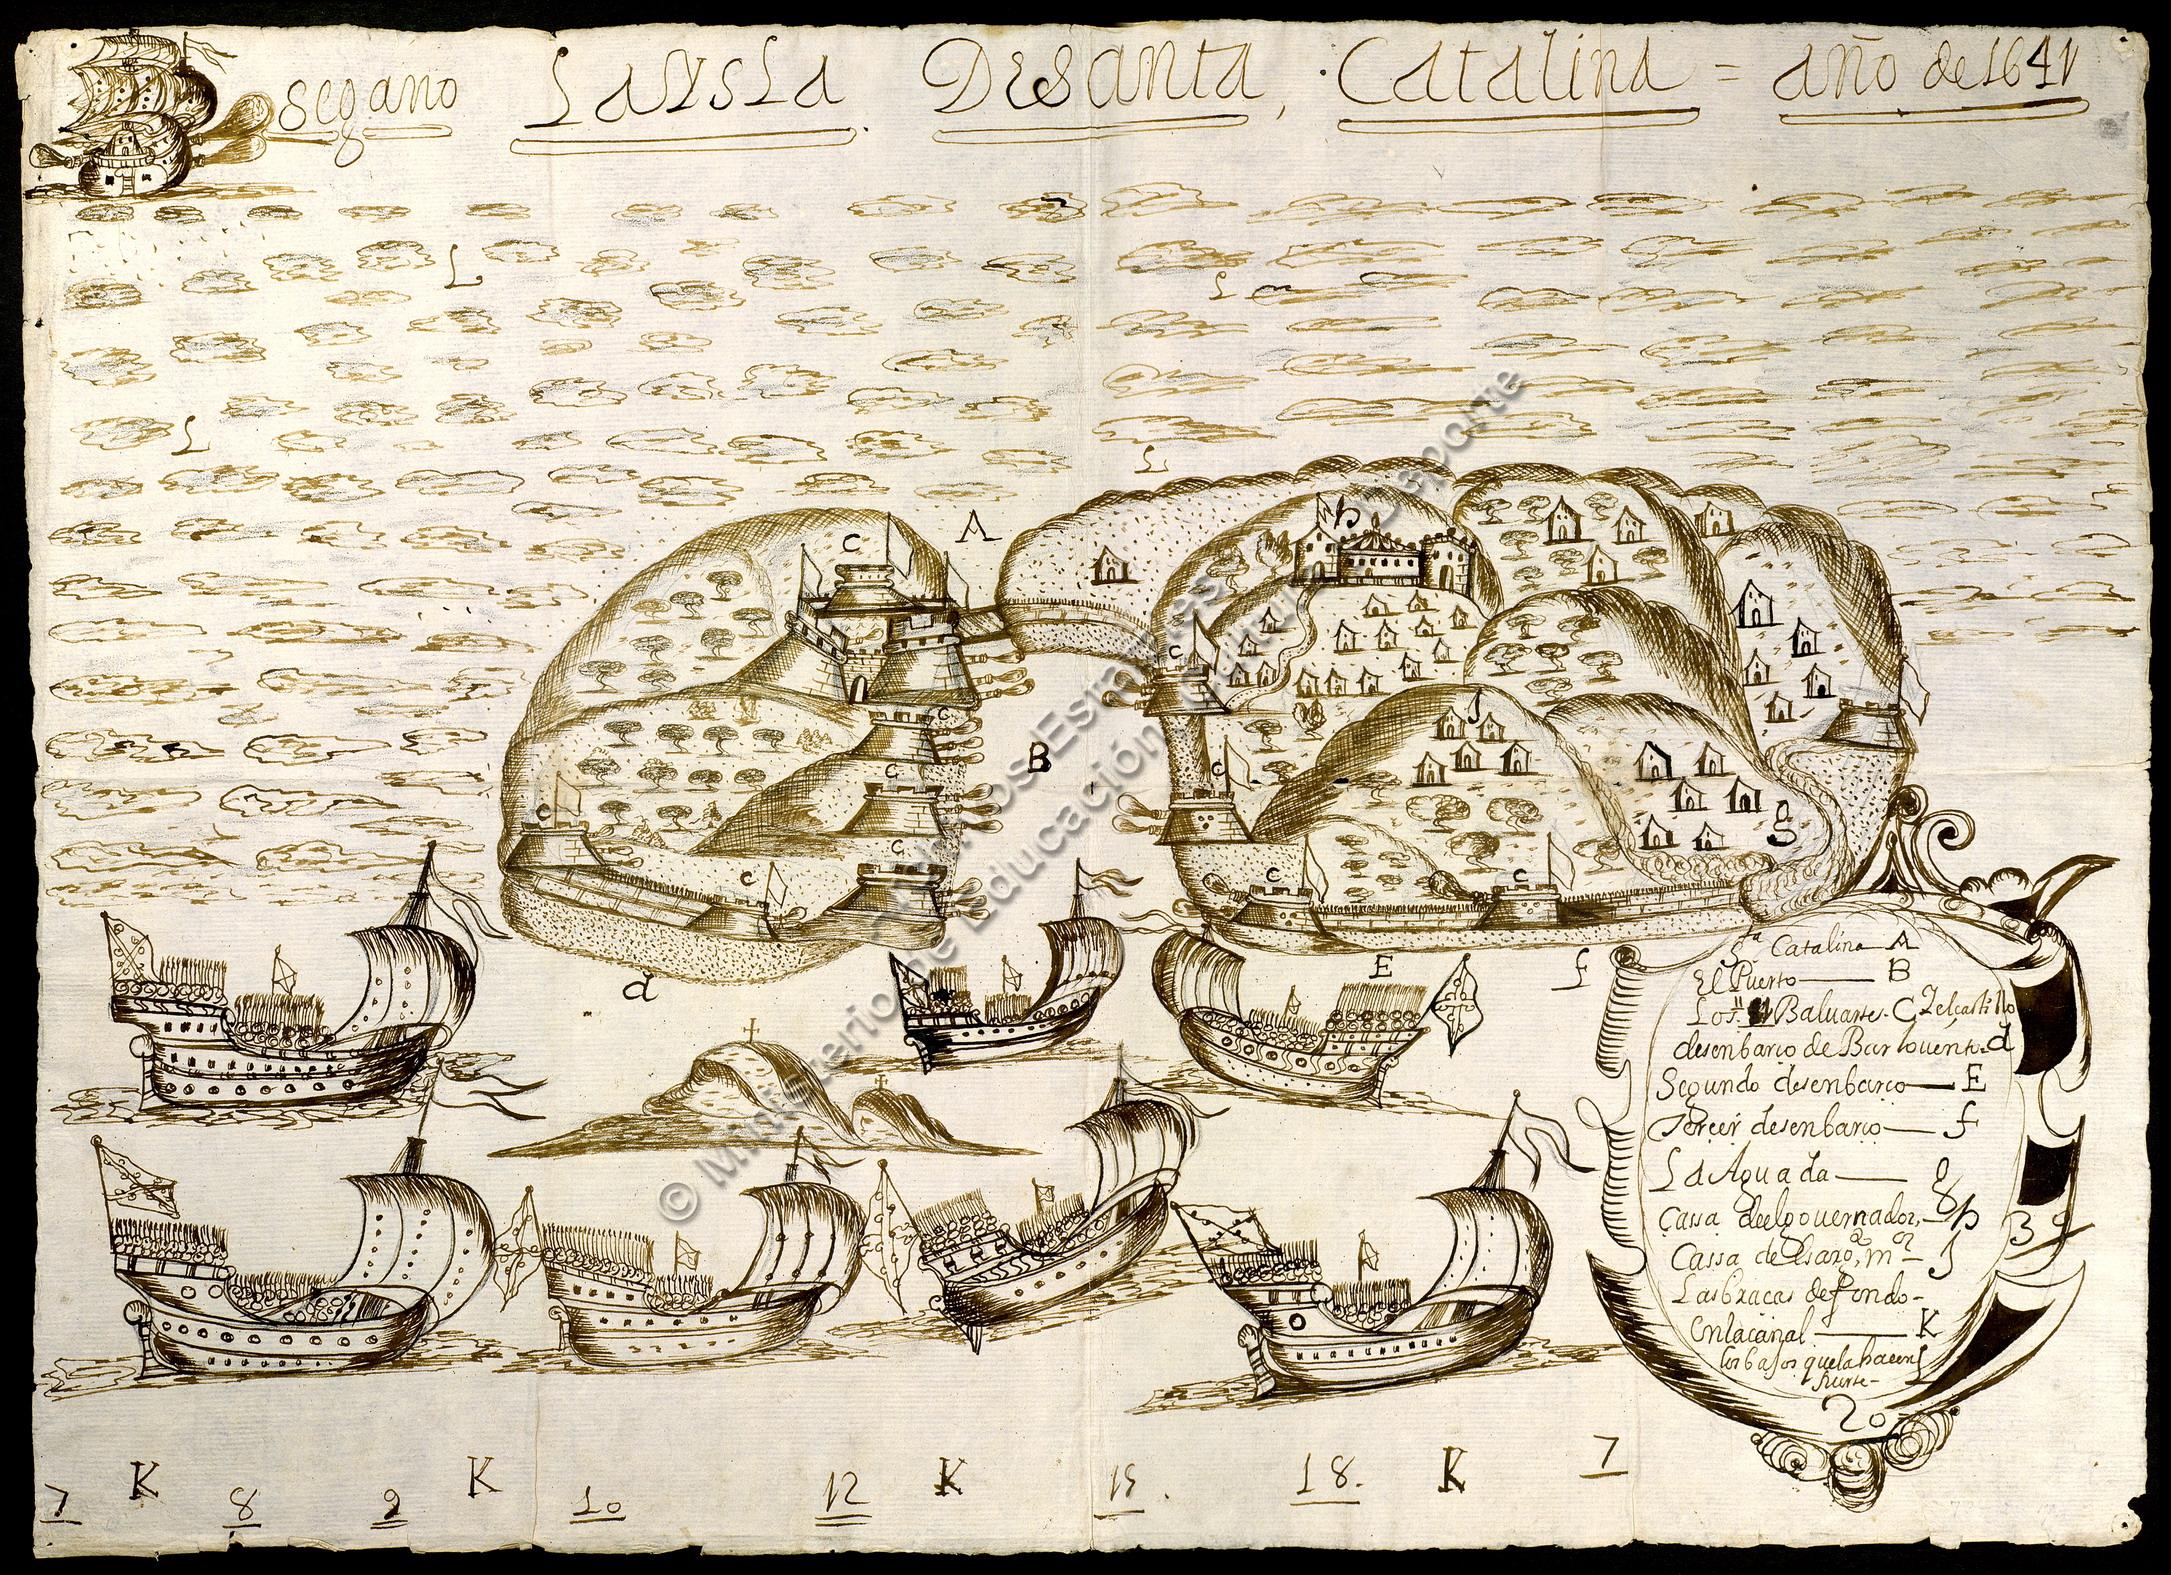 segano La Ysla De Santa, Catalina = año de 1641
L
L
L
L
A
h
C
C
C
B
C
C
C
C
C
J
C
C
C
g
d
E
f
Sª Catalina — A
El Puerto — B
Los Baluartes. C
desenbario de Barlovento. d
Segundo desenbario — E
Tercer desenbario — f
La Aguada — g
Cassa deel governador, — h
Cassa del
Las bracas de fondo -
en la canal — K
los bajos que la hacen L
fuerte -
20
39
7 K 8 9 K 10 12 K 15. 18. K 7
© Ministerio de Educación, Cultura y Deporte